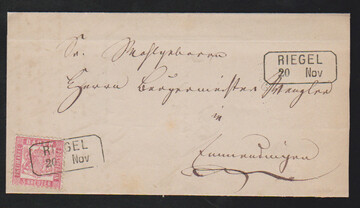 Sr. Wohlgeboren
RIEGEL
20 Nov
Herrn Bürgermeister Wenzler
in
Emmendingen
RIEGEL
20 Nov